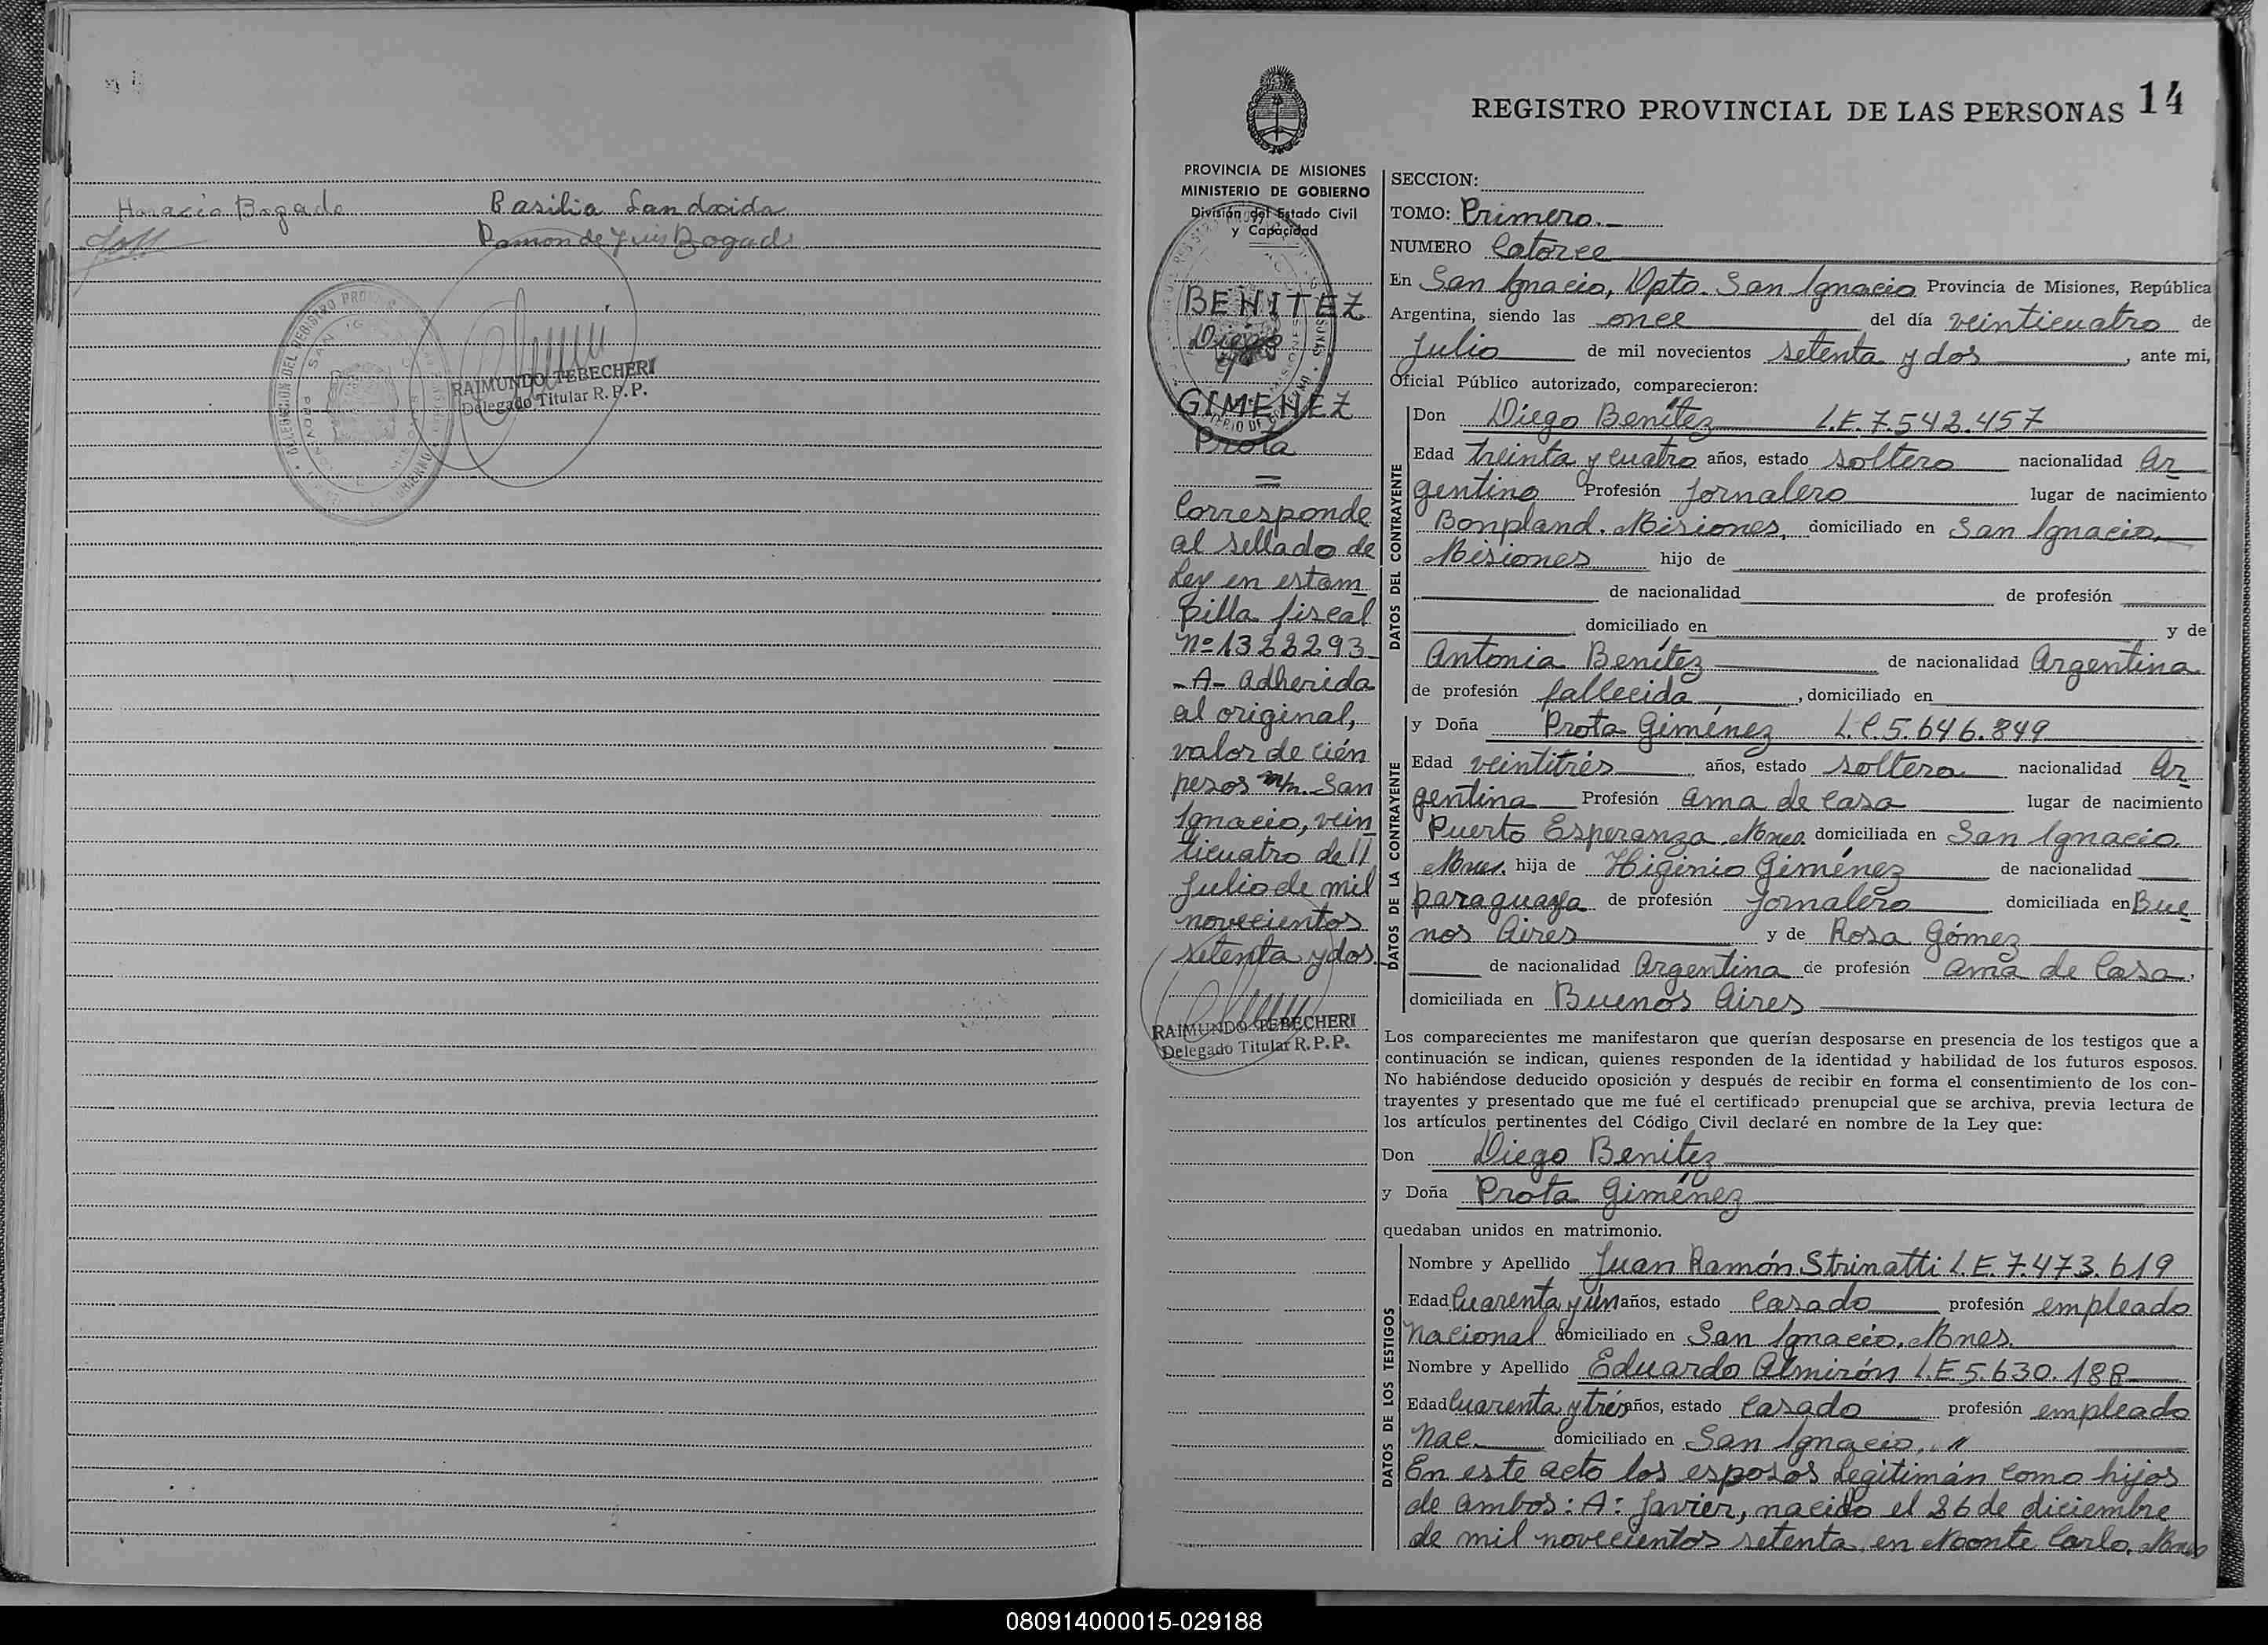 Horacio Bogado
Basilia Sandoida
Ramon de Jesus Bogado
RAIMUNDO TEBECHERI
Delegado Titular R. P. P.
REGISTRO PROVINCIAL DE LAS PERSONAS 14
PROVINCIA DE MISIONES
MINISTERIO DE GOBIERNO
División del Estado Civil
y Capacidad
BENITEZ
Diego
y
GIMENEZ
Prota
=
Corresponde
al sellado de
Ley en estam
pilla fiscal
Nº 1322293
-A- adherida
al original,
valor de cién
pesos m/n. San
Ignacio, vein
ticuatro de //
Julio de mil
novecientos
setenta y dos.
RAIMUNDO TEBECHERI
Delegado Titular R. P. P.
SECCION:
TOMO: Primero.-
NUMERO Catorce
En San Ignacio, Dpto. San Ignacio Provincia de Misiones, República
Argentina, siendo las once del día veinticuatro de
Julio de mil novecientos setenta y dos, ante mi,
Oficial Público autorizado, comparecieron:
DATOS DEL CONTRAYENTE
Don Diego Benítez L.E. 7.542.457
Edad treinta y cuatro años, estado soltero nacionalidad Ar
gentino Profesión Jornalero lugar de nacimiento
Bonpland. Misiones, domiciliado en San Ignacio,
Misiones hijo de
de nacionalidad de profesión
domiciliado en y de
Antonia Benítez de nacionalidad Argentina
de profesión fallecida, domiciliado en
DATOS DE LA CONTRAYENTE
y Doña Prota Giménez L.C. 5.646.849
Edad veintitrés años, estado soltera nacionalidad Ar
gentina Profesión ama de casa lugar de nacimiento
Puerto Esperanza. Mnes. domiciliada en San Ignacio.
Mnes. hija de Higinio Giménez de nacionalidad
paraguaya de profesión Jornalero domiciliada en Bue
nos Aires y de Rosa Gómez
de nacionalidad Argentina de profesión ama de Casa,
domiciliada en Buenos Aires
Los comparecientes me manifestaron que querían desposarse en presencia de los testigos que a
continuación se indican, quienes responden de la identidad y habilidad de los futuros esposos.
No habiéndose deducido oposición y después de recibir en forma el consentimiento de los con-
trayentes y presentado que me fué el certificado prenupcial que se archiva, previa lectura de
los artículos pertinentes del Código Civil declaré en nombre de la Ley que:
Don Diego Benítez
y Doña Prota Giménez
quedaban unidos en matrimonio.
DATOS DE LOS TESTIGOS
Nombre y Apellido Juan Ramón Strinatti L.E. 7.473.619
Edad Cuarenta y un años, estado Casado profesión empleado
Nacional domiciliado en San Ignacio. Mnes.
Nombre y Apellido Eduardo Almirón L.E 5.630.188
Edad Cuarenta y trés años, estado Casado profesión empleado
Nac. domiciliado en San Ignacio, "
En este acto los esposos Legitimán como hijos
de ambos: A: Javier, nacido el 26 de diciembre
de mil novecientos setenta, en Monte Carlo. Mnes
080914000015-029188